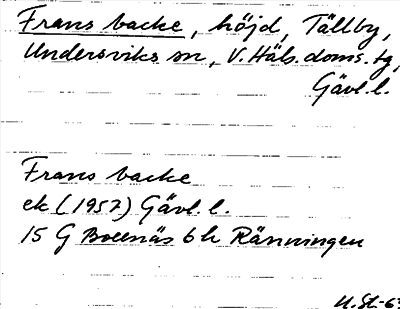 Frans backe, höjd, Tällby,
Undersviks sn, V. Häls. doms. tg,
Gävl. l.
Frans backe
ek (1957) Gävl. l.
15 G Bollnäs 6 h Ränningen
U. St-63